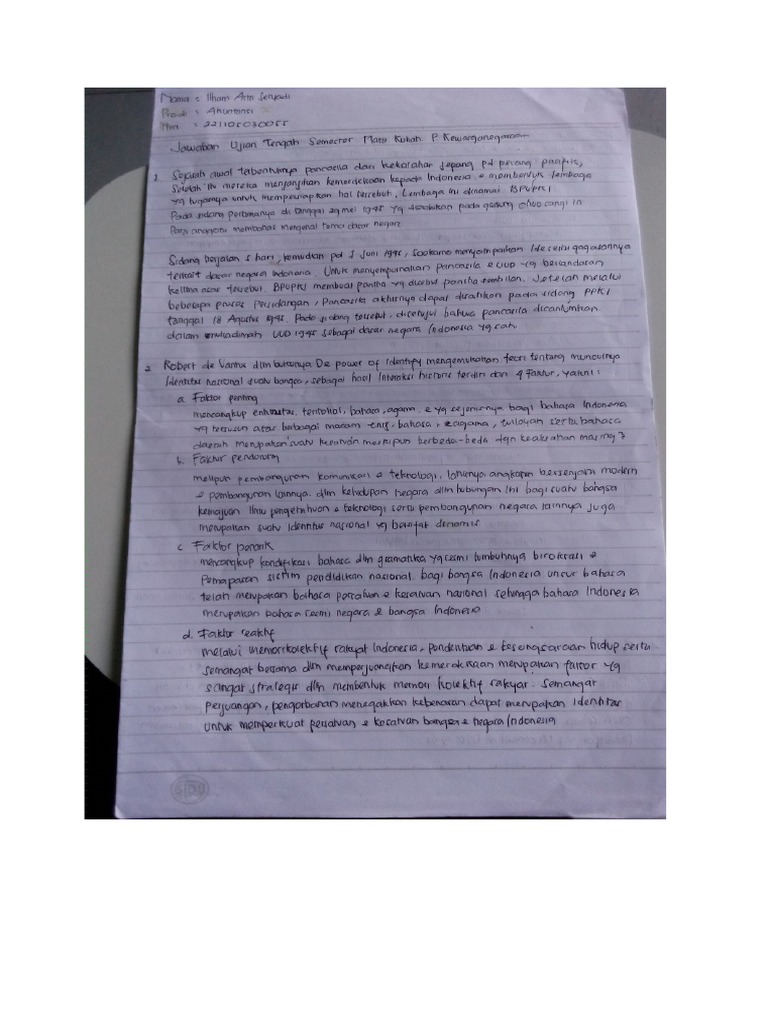 Nama : Ilham Arta Setyadi
Prodi : Akuntansi
Nim : 221105030055
Jawaban Ujian Tengah Semester Mata Kuliah P. Kewarganegaraan
1. Sejarah awal terbentuknya pancasila dari kekalahan Jepang pd perang pasifik,
Setelah itu mereka menjanjikan kemerdekaan kepada Indonesia & membentuk lembaga
yg tugasnya untuk mempersiapkan hal tersebut, Lembaga ini dinamai BPUPKI
Pada sidang pertamanya di tanggal 29 mei 1945 yg diadakan pada gedung chuo sangi in
Para anggota membahas mengenai tema dasar negara
Sidang berjalan 5 hari, kemudian pd 1 Juni 1945, Soekarno menyampaikan ide serta gagasannya
terkait dasar negara Indonesia. Untuk menyempurnakan pancasila & UUD yg berlandaskan
kelima asas tersebut. BPUPKI membuat panitia yg disebut panitia sembilan. Setelah melalui
beberapa proses Persidangan, Pancasila akhirnya dapat disahkan pada sidang PPKI
tanggal 18 Agustus 1945. Pada sidang tersebut, disetujui bahwa pancasila dicantumkan
dalam mukadimah UUD 1945 sebagai dasar negara Indonesia yg sah
2. Robert de Ventos dlm bukunya De power of Identify mengemukakan teori tentang munculnya
Identitas nasional suatu bangsa, sebagai hasil interaksi historis terdiri dari 4 Faktor, yakni :
a. Faktor penting
mencangkup etnisitas, teritorial, bahasa, agama, & yg sejenisnya bagi bahasa Indonesia
yg tersusun atas berbagai macam etnis, bahasa, agama, wilayah serta bahasa
daerah merupakan suatu kesatuan meskipun berbeda-beda dgn keakraban masing2
b. Faktor pendorong
meliputi pembangunan komunikasi & teknologi, lahirnya angkapan bersenjata modern
& pembangunan lainnya dlm kehidupan negara dlm hubungan ini bagi suatu bangsa
kemajuan Ilmu pengetahuan & teknologi serta pembangunan negara lainnya juga
merupakan suatu Identitas nasional yg bersifat dinamis
c. Faktor penarik
mencangkup kodifikasi bahasa dlm gramatika yg resmi tumbuhnya birokrasi &
Pemaparan sistim pendidikan nasional. bagi bangsa Indonesia unsur bahasa
telah merupakan bahasa persatuan & kesatuan nasional sehingga bahasa Indonesia
merupakan bahasa resmi negara & bangsa Indonesia
d. Faktor reaktif
melalui memori kolektif rakyat Indonesia, penderitaan & kesengsaraan hidup serta
semangat bersama dlm memperjuangkan kemerdekaan merupakan faktor yg
sangat strategis dlm membentuk memori kolektif rakyat. Semangat
perjuangan, pengorbanan menegakkan kebenaran dapat merupakan identitas
untuk memperkuat persatuan & kesatuan bangsa & negara Indonesia
SIDU